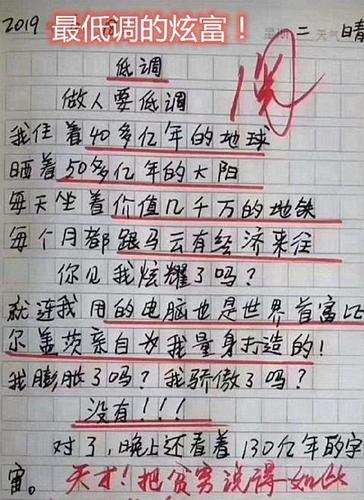 2019
最低调的炫富！
星期二 天气 晴
低调
阅
做人要低调
我住着40多亿年的地球
晒着50多亿年的太阳
每天坐着价值几千万的地铁
每个月都跟马云有经济来往
你见我炫耀了吗？
就连我用的电脑也是世界首富比
尔盖茨亲自为我量身打造的！
我膨胀了吗？我骄傲了吗？
没有！！！
对了，晚上还看着130亿年的宇
宙。
天才！把贫穷说得如此